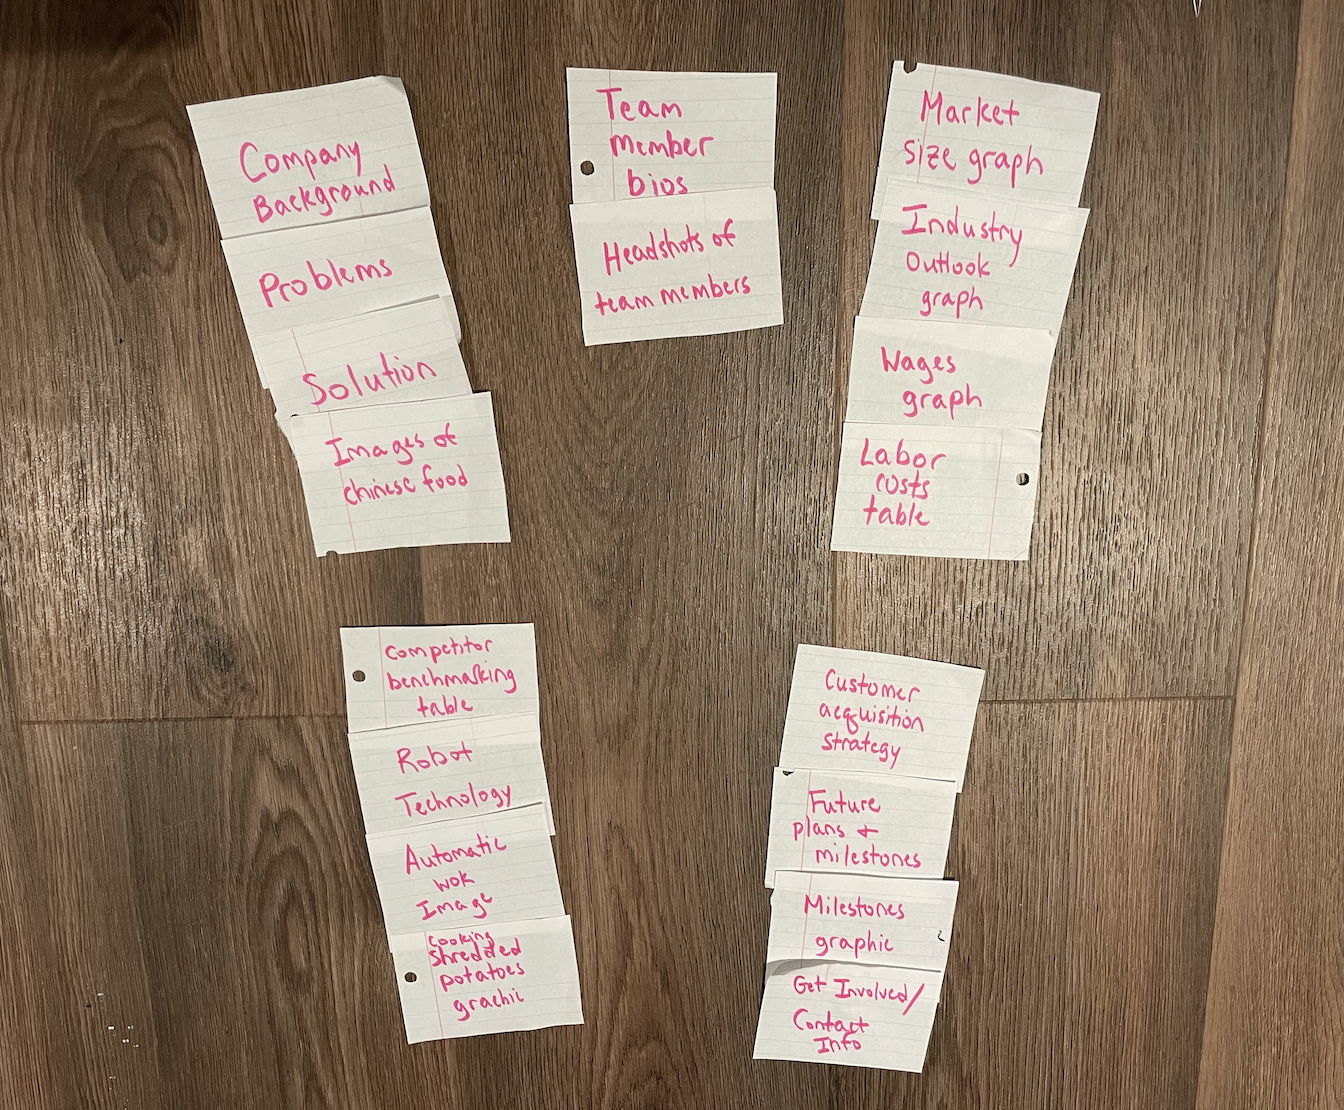 Company
Background
Problems
Solution
Images of
chinese food
Team
member
bios
Headshots of
team members
Market
size graph
Industry
Outlook
graph
Wages
graph
Labor
costs
table
Competitor
benchmarking
table
Robot
Technology
Automatic
wok
Image
cooking
shredded
potatoes
grachic
Customer
acquisition
strategy
Future
plans +
milestones
Milestones
graphic
Get Involved/
Contact
Info